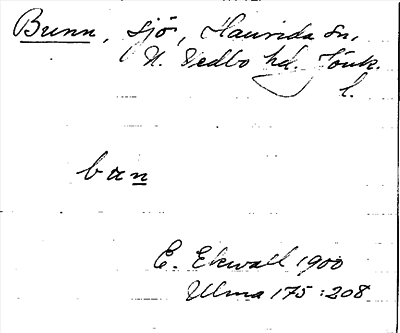 Bunn, sjö, Haurida sn,
N. Vedbo hd. Jönk.
l.
ban
E. Ekwall 1900
Ulma 175:208